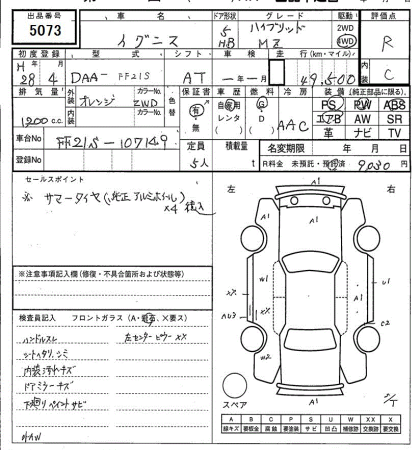 出品番号 車名 ドア形状 グレード 駆動 評価点
5073 イグニス 5 HB ハイブリッド MZ 2WD 4WD R
初度登録 型式 シフト 車検 走行(km・マイル) 内装
H 28年 4月 DAA-FF21S AT 年 月 49,500 C
排気量 外装 カラーNo. 色替 保証書 車歴 燃料 冷房 装備(純正部品に限る)
1200 c.c. オレンジ ZWD 有・無 自家用 レンタ ( ) G D ( ) AAC PS PW ABS
エアB AW SR
革 ナビ TV
車台No FF21S-107149 定員 5人 積載量 t 名変期限 年 月 日
登録No R料金 未預託・預託済 9,030 円
セールスポイント
※ サマータイヤ(純正アルミホイール)×4 積込
※注意事項記入欄(修復・不具合箇所および状態等)
検査員記入 フロントガラス(A・飛石、X要ス)
ハンドルスレ 左センターピラーXX
シートヘタリ、シミ
内装汚レキズ
ドアミラーキズ
下廻りペイントサビ
外AW
左 右
A1
A1
W1
XX
XX
AU3
W2
U1
C2
A1
A1
スペア
A B C P S U W X XX
線キズ 要板金 腐蝕 要塗装 サビ 凹凸 補修跡 要交換 交換